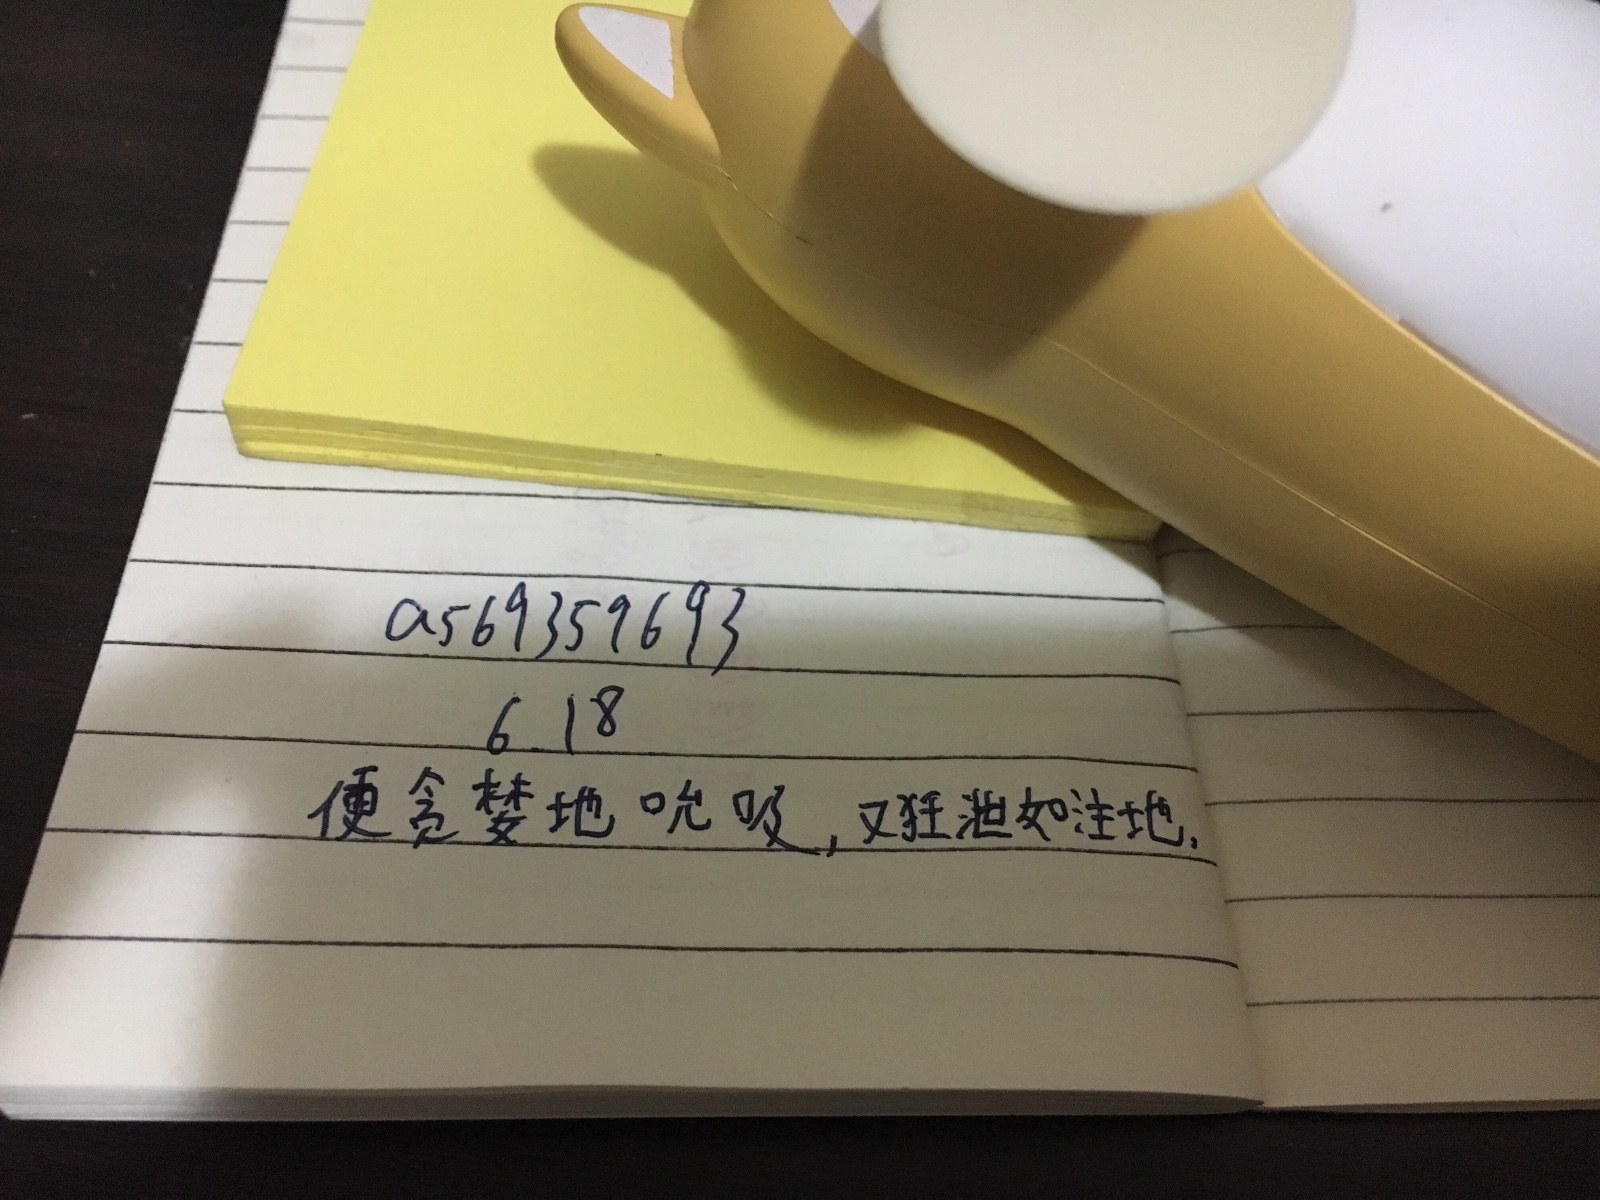 a569359693
6.18
便贪婪地吮吸,又狂泄如注地.